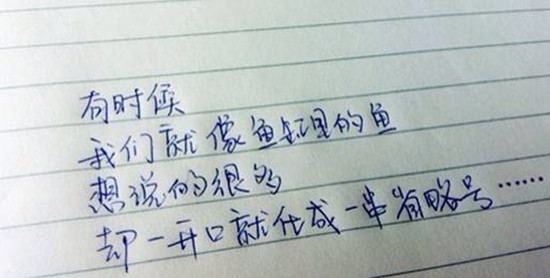 有时候
我们就像鱼缸里的鱼
想说的很多
却一开口就化成一串省略号……